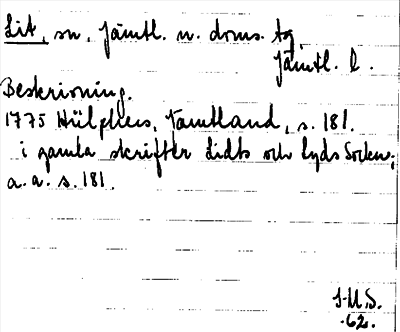 Lit, sn, Jämtl. n. doms. tg
Jämtl. l.
Beskrivning.
1775 Hülphers, Jämtland, s. 181.
i gamla skrifter Lidts och Lyds Socken;
a. a. s. 181.
J.M.S.
-62.